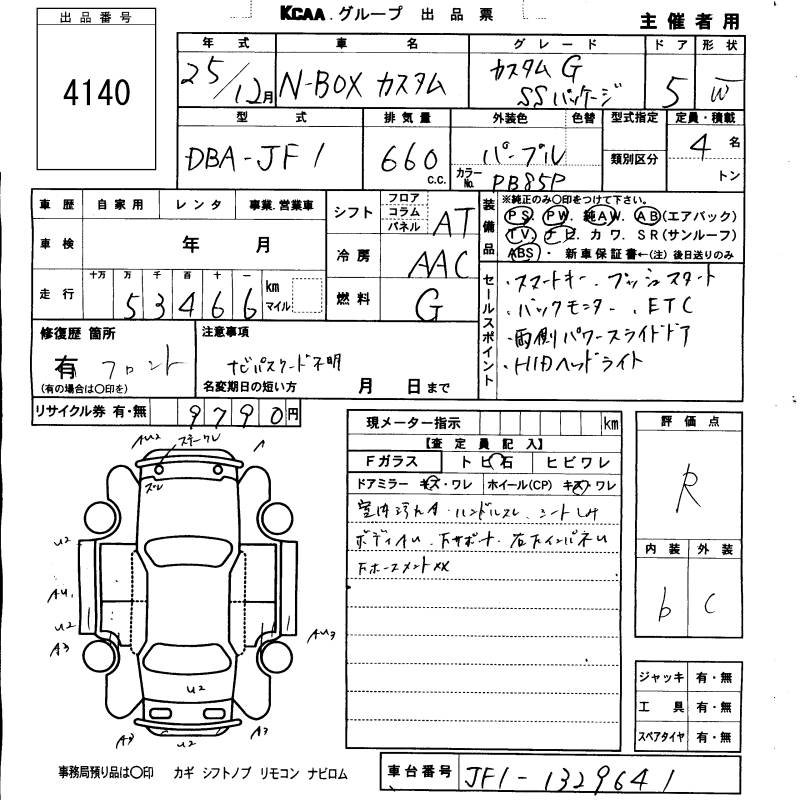 KCAA.グループ 出品票
主催者用
出品番号
4140
年式 車名 グレード ドア 形状
25/12月 N-BOX カスタム カスタム G SSパッケージ 5 W
型式 排気量 外装色 色替 型式指定 定員・積載
DBA-JF1 660 c.c. パープル 類別区分 4名
カラーNo. PB85P トン
車歴 自家用 レンタ 事業.営業車
車検 年 月
走行 十万 万 千 百 十 一
53466 km マイル
シフト フロア コラム パネル AT
冷房 AAC
燃料 G
装備品 ※純正のみ〇印をつけて下さい。
PS PW. 純AW. AB(エアバック)
TV. ナビ カワ. SR(サンルーフ)
ABS・ 新車保証書←(注)後日送りのみ
セールスポイント
・スマートキー. プッシュスタート
・バックモニター . ETC
・両側パワースライドドア
・HIDヘッドライト
修復歴 箇所
有 フロント
(有の場合は〇印を)
注意事項
ナビパスワード不明
名変期日の短い方 月 日まで
リサイクル券 有・無 9790円
現メーター指示 km
【査定員記入】
Fガラス トビ石 ヒビワレ
ドアミラー キズ・ワレ ホイール(CP) キズ・ワレ
室内汚れA・ハンドルスレ. シートしみ
ボディAU. 下サポート. 右下インパネU
評価点
R
内装 外装
b C
AU2
U2
AU1
U2
A3
AU3
U2
A3
U2
A3
ジャッキ 有・無
工具 有・無
スペアタイヤ 有・無
事務局預り品は〇印 カギ シフトノブ リモコン ナビロム
車台番号 JF1-1329641